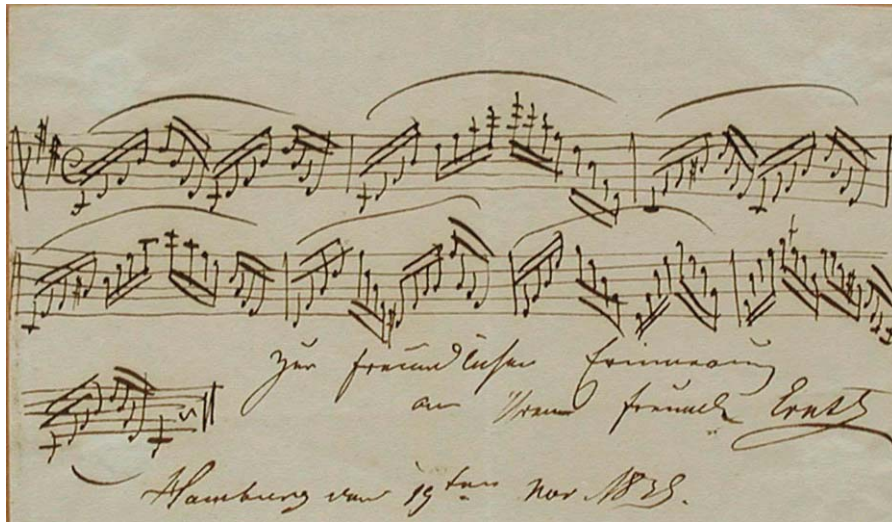 Zur freundlichen Erinnerung
an Ihren Freund Ernst
Hamburg den 19ten Nov 1839.